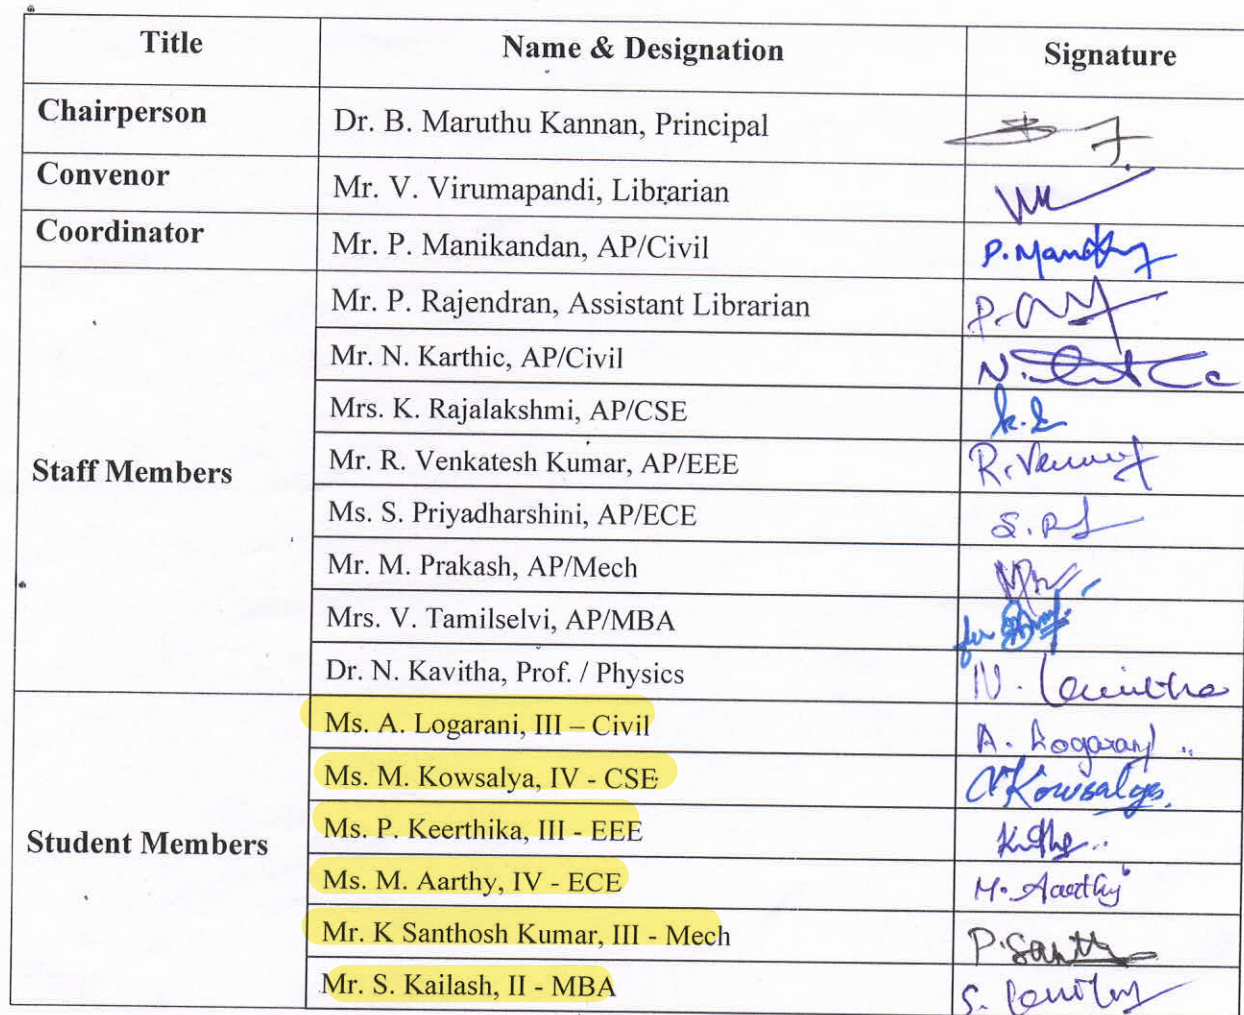 Title Name & Designation Signature
Chairperson Dr. B. Maruthu Kannan, Principal
Convenor Mr. V. Virumapandi, Librarian
Coordinator Mr. P. Manikandan, AP/Civil
Mr. P. Rajendran, Assistant Librarian
Mr. N. Karthic, AP/Civil
Mrs. K. Rajalakshmi, AP/CSE
Staff Members Mr. R. Venkatesh Kumar, AP/EEE
Ms. S. Priyadharshini, AP/ECE
Mr. M. Prakash, AP/Mech
Mrs. V. Tamilselvi, AP/MBA
Dr. N. Kavitha, Prof. / Physics
Ms. A. Logarani, III – Civil
Ms. M. Kowsalya, IV - CSE
Student Members Ms. P. Keerthika, III - EEE
Ms. M. Aarthy, IV - ECE M. Aarthy
Mr. K Santhosh Kumar, III - Mech
Mr. S. Kailash, II - MBA